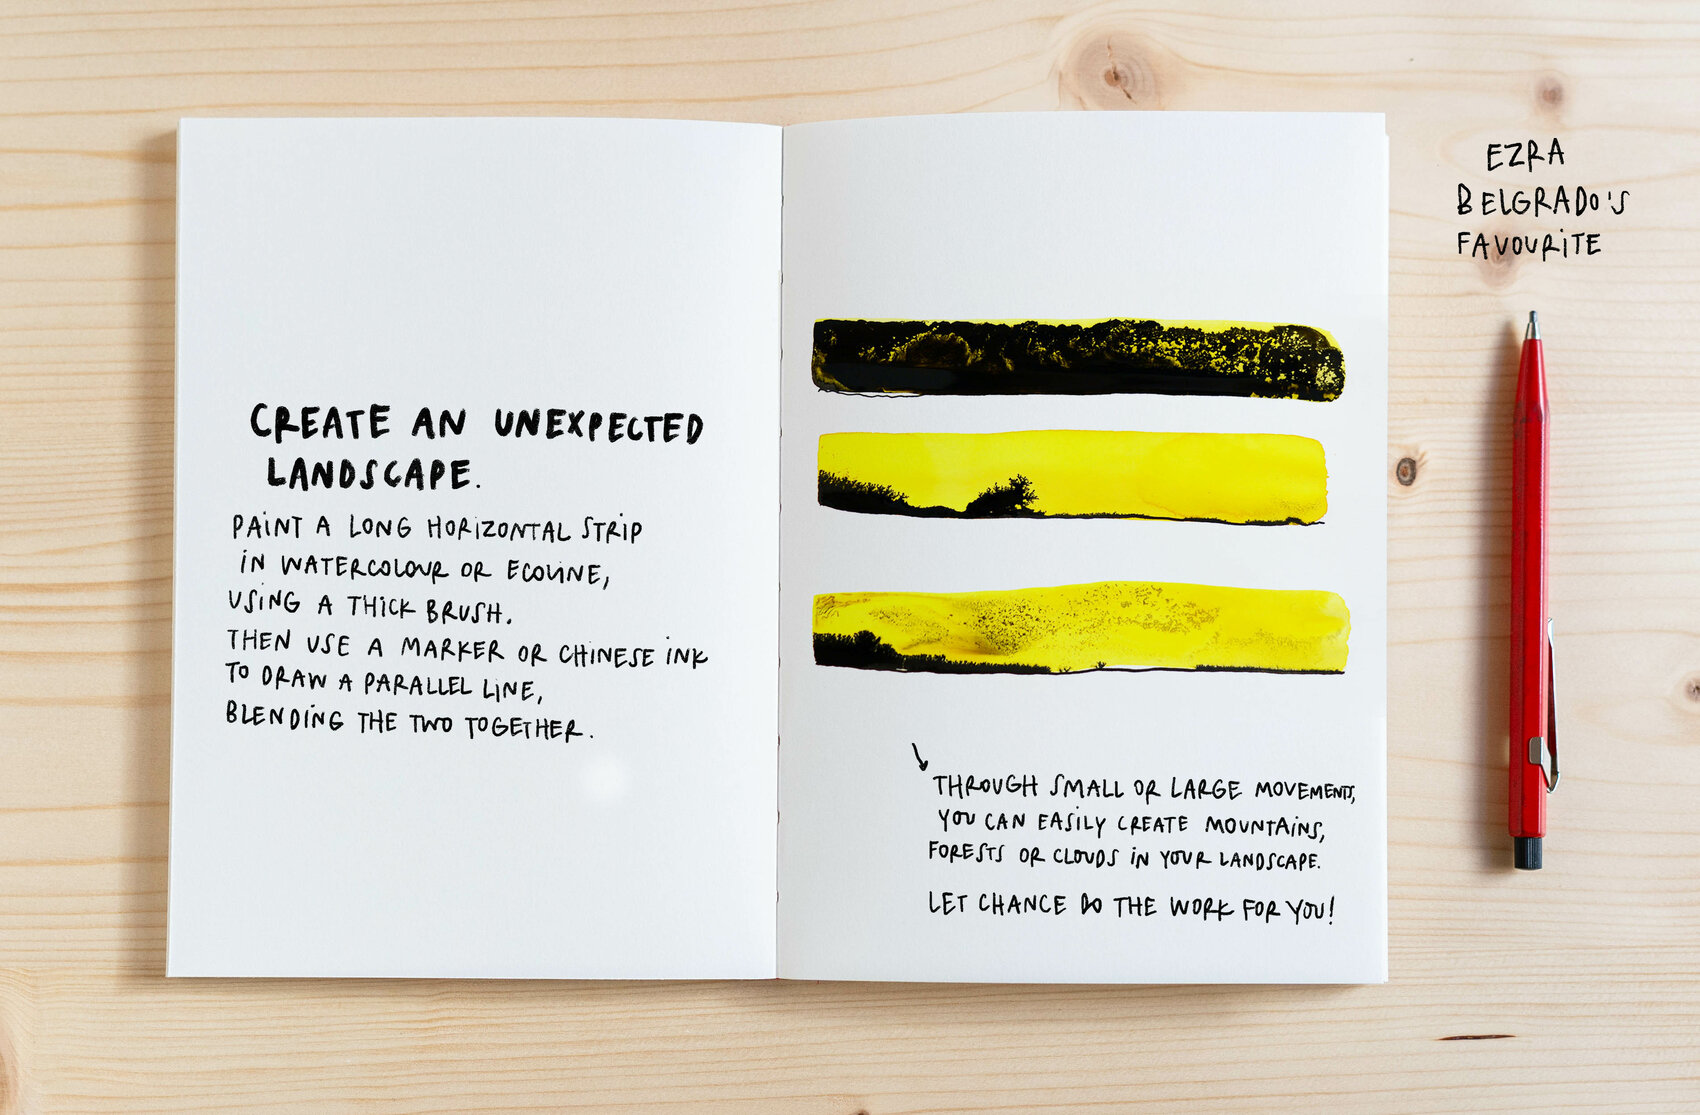 CREATE AN UNEXPECTED
LANDSCAPE.
PAINT A LONG HORIZONTAL STRIP
IN WATERCOLOUR OR ECOLINE,
USING A THICK BRUSH.
THEN USE A MARKER OR CHINESE INK
TO DRAW A PARALLEL LINE,
BLENDING THE TWO TOGETHER.
THROUGH SMALL OR LARGE MOVEMENTS,
YOU CAN EASILY CREATE MOUNTAINS,
FORESTS OR CLOUDS IN YOUR LANDSCAPE.
LET CHANCE DO THE WORK FOR YOU!
EZRA
BELGRADO'S
FAVOURITE